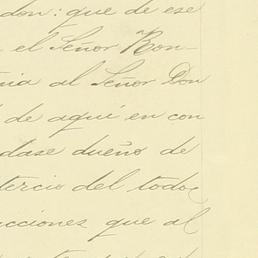 don: que de ese
el Señor Bon-
al Señor Don
de aquí en con
dase dueño de
tercio del todo,
acciones que al